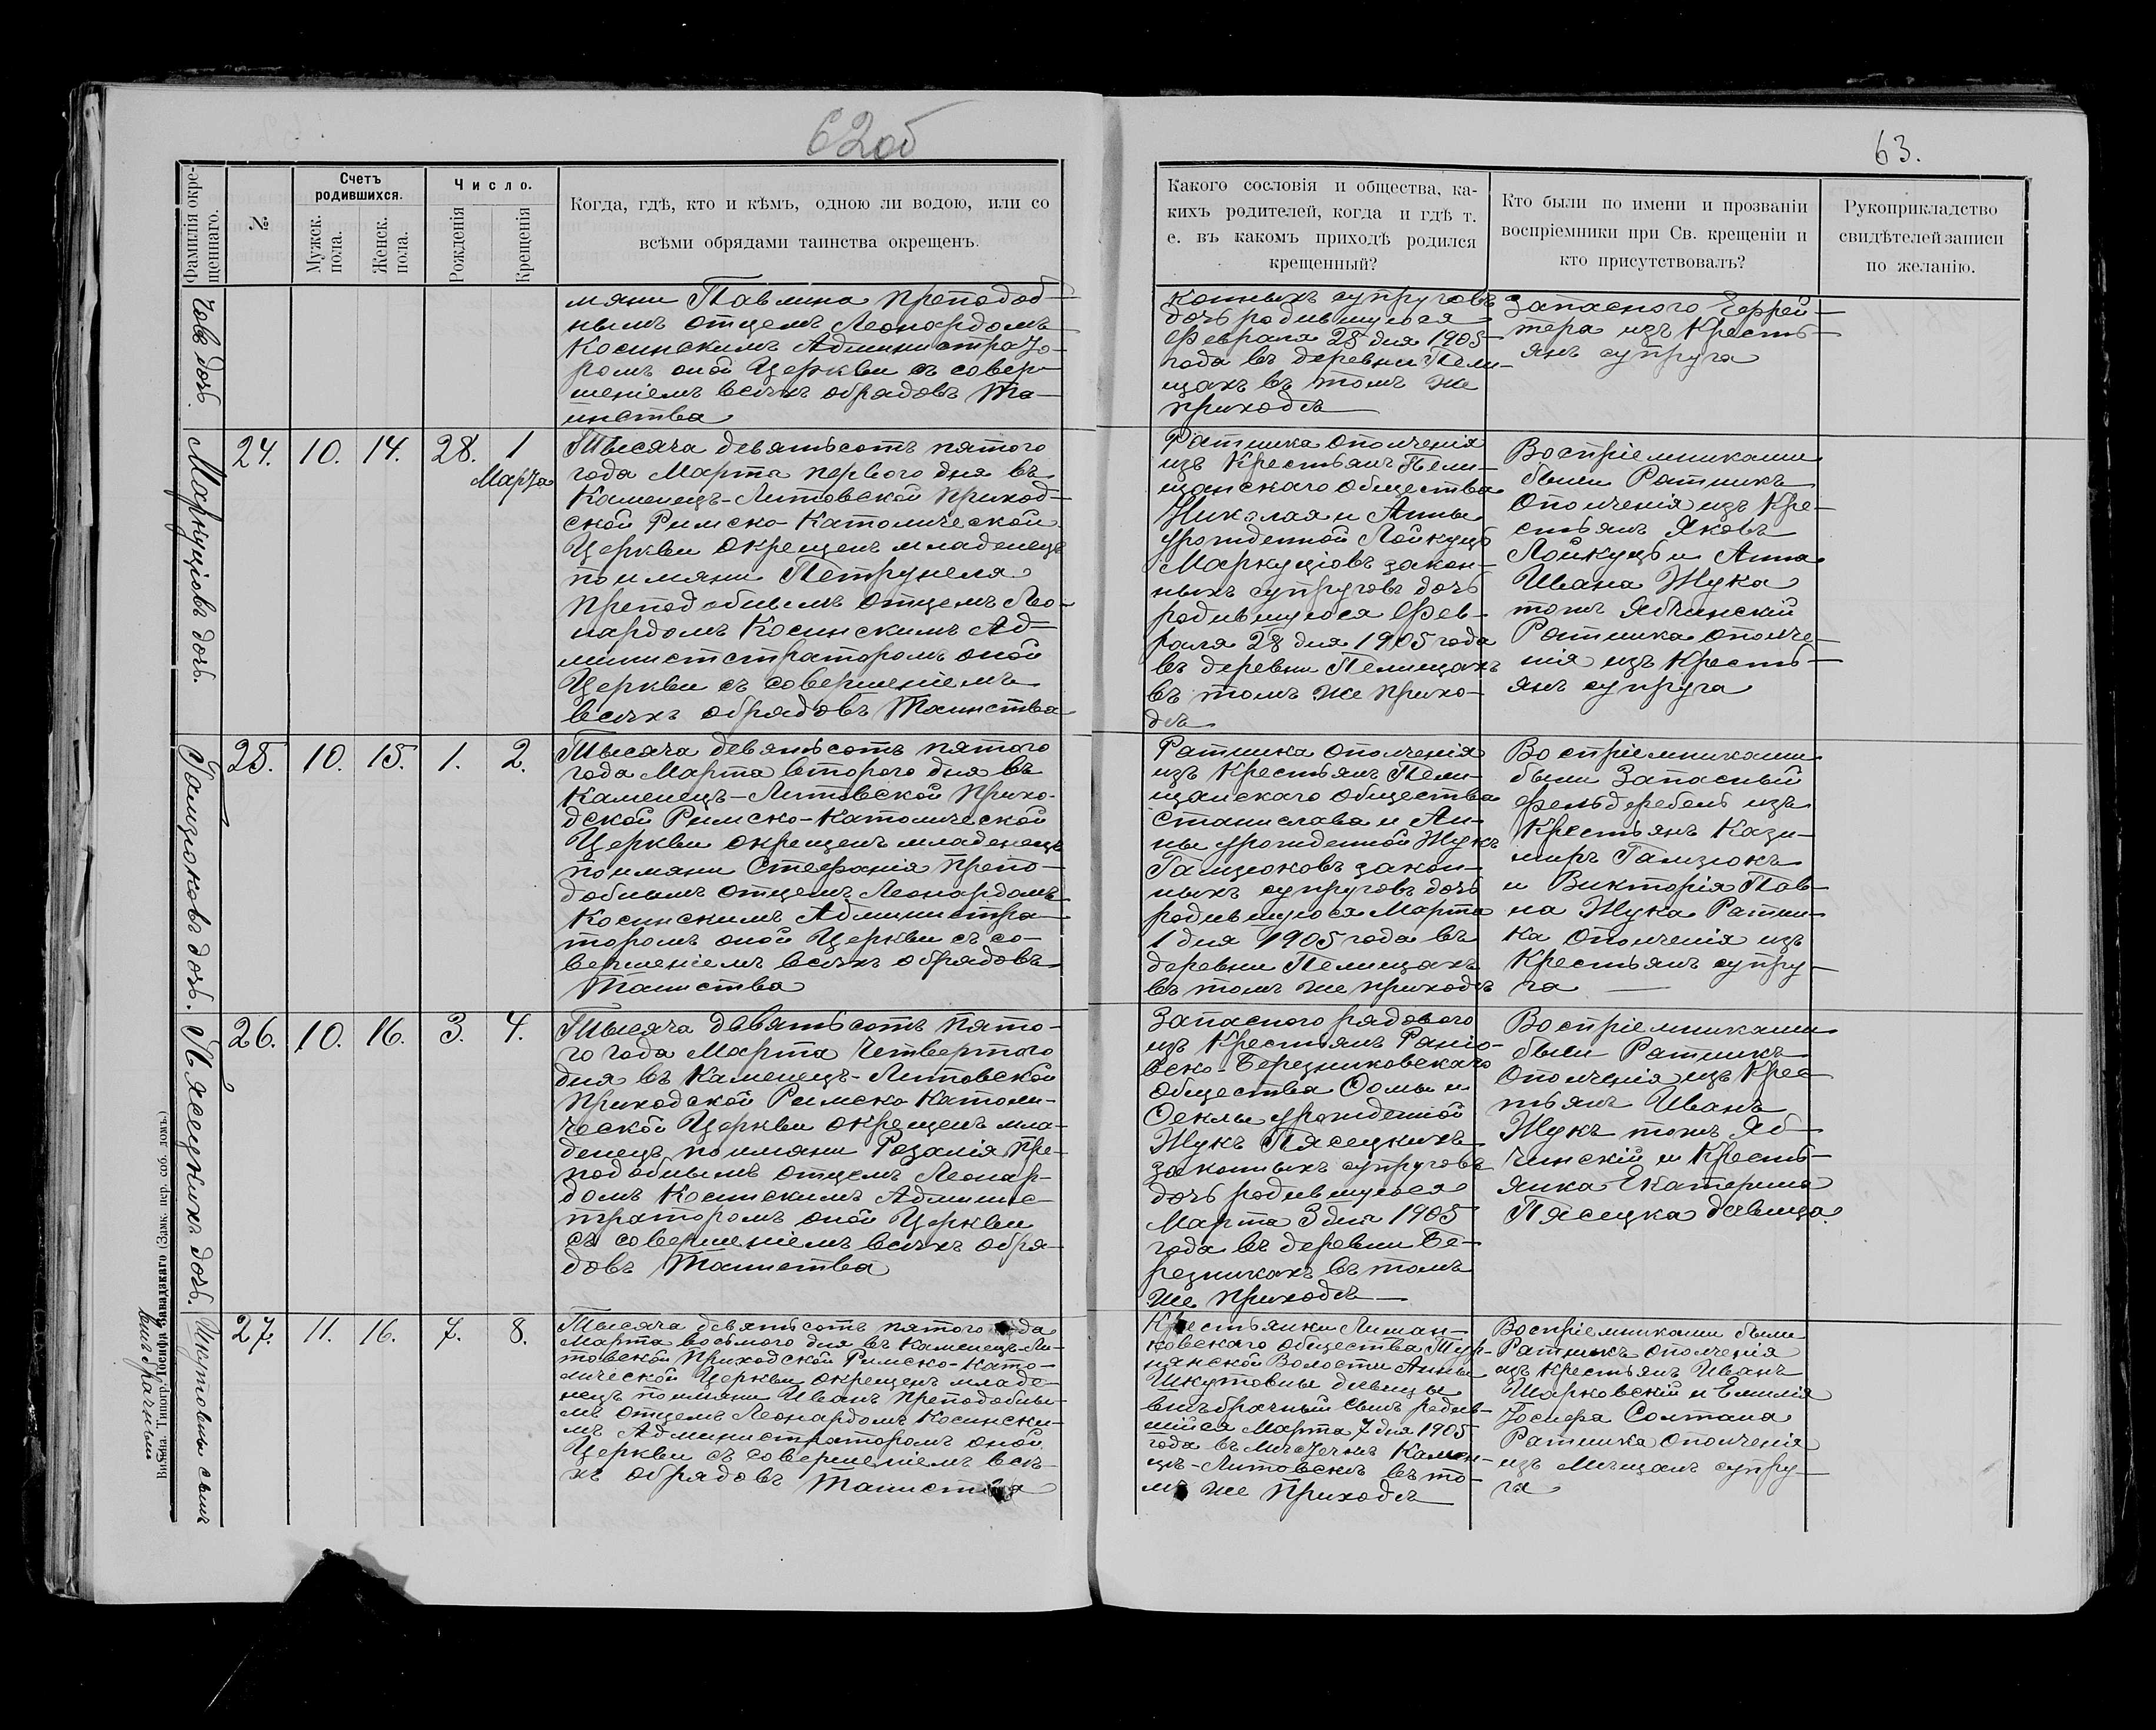 62об
63.
Фамилія окрещеннаго.
№
Счетъ родившихся.
Мужск. пола.
Женск. пола.
Число.
Рожденія
Крещенія
Когда, гдѣ, кто и кѣмъ, одною ли водою, или со
всѣми обрядами таинства окрещенъ.
Какого сословія и общества, ка-
кихъ родителей, когда и гдѣ т.
е. въ какомъ приходѣ родился
крещенный?
Кто были по имени и прозваніи
воспріемники при Св. крещеніи и
кто присутствовалъ?
Рукоприкладство
свидѣтелей записи
по желанію.
човъ дочь.
мяни Павлина преподоб-
нымъ отцемъ Леонардомъ
Косинскимъ Администрато-
ромъ оной Церкви съ совер-
шеніемъ всѣхъ обрядовъ Та-
инства
конныхъ супруговъ
дочь родившуюся
Февраля 28 дня 1905
года въ деревни Пели-
щахъ въ томъ же
приходѣ
Запасного Ефрей-
тера изъ Кресть-
янъ супруга
Маркуцовъ дочь.
24.
10.
14.
28.
1
Марта
Тысяча девятьсотъ пятого
года Марта первого дня въ
Каменецъ-Литовской приход-
ской Римско-Католической
Церкви окрещенъ младенецъ
по имяни Петрунеля
преподобнымъ отцемъ Лео-
нардомъ Косинскимъ Ад-
министстраторомъ оной
Церкви съ совершеніемъ
всѣхъ обрядовъ Таинства
Ратника ополченія
изъ Крестьянъ Пели-
щанскаго общества
Николая и Анны
урожденной Лойкуцъ
Маркуцовъ закон-
ныхъ супруговъ дочь
родившуюся Фев-
раля 28 дня 1905 года
въ деревни Пелищахъ
въ томъ же прихо-
дѣ
Воспріемниками
были Ратникъ
Ополченія изъ Кре-
стьянъ Яковъ
Лойкуцъ и Анна
Ивана Жука
тожъ Ябчинскій
Ратника ополче-
нія изъ Кресть-
янъ супруга
Гамзюковъ дочь.
25.
10.
15.
1.
2.
Тысяча девятьсотъ пятого
года Марта второго дня въ
Каменецъ-Литовской прихо-
дской Римско-Католической
Церкви окрещенъ младенецъ
по имяни Стефанія препо-
добнымъ отцемъ Леонардомъ
Косинскимъ Администра-
торомъ оной Церкви съ со-
вершеніемъ всѣхъ обрядовъ
Таинства
Ратника ополченія
изъ Крестьянъ Пели-
щанскаго общества
Станислава и Ан-
ны урожденной Жукъ
Гамзюковъ закон-
ныхъ супруговъ дочь
родившуюся Марта
1 дня 1905 года въ
деревни Пелищахъ
въ томъ же приходѣ
Воспріемниками
были Запасный
Фельдфебель изъ
Крестьянъ Кази-
миръ Гамзюкъ
и Викторія Пав-
ла Жука Ратни-
ка ополченія изъ
Крестьянъ супру-
га
Пясецкихъ дочь.
26.
10.
16.
3.
4.
Тысяча девятьсотъ пято-
го года Марта четвертого
дня въ Каменецъ-Литовской
Приходской Римско Католи-
ческой Церкви окрещенъ мла-
денецъ по имяни Розалія пре-
подобнымъ отцемъ Леонар-
домъ Косинскимъ Админис-
траторомъ оной Церкви
съ совершеніемъ всѣхъ обря-
довъ Таинства
Запасного рядового
изъ Крестьянъ
Березниковскаго
общества Ѳомы и
Ѳеклы урожденной
Жукъ Пясецкихъ
законныхъ супруговъ
дочь родившуюся
Марта 3 дня 1905
года въ деревни Бе-
резникахъ въ томъ
же приходѣ
Воспріемниками
были Ратникъ
Ополченія изъ Крес
тьянъ Иванъ
Жукъ тожъ Яб-
чинскій и Кресть-
янка Екатерина
Пясецка дѣвица.
Шкутовны сынъ
внѣбрачный
27.
11.
16.
7.
8.
Тысяча девятьсотъ пятого года
Марта восьмого дня въ Каменецъ-Ли-
товской Приходской Римско-Като-
лической Церкви окрещенъ младе-
нецъ по имяни Иванъ преподобны-
мъ отцемъ Леонардомъ Косински-
мъ Администраторомъ оной
Церкви съ совершеніемъ всѣ-
хъ обрядовъ Таинства
Крестьянки Лиман-
ковскаго общества Тур-
нянской Волости Анны
Шкутовны дѣвицы
внѣбрачный сынъ родив-
шійся Марта 7 дня 1905
года въ мѣстечкѣ Камен-
цѣ-Литовскѣ въ то-
мъ же Приходѣ
Воспріемниками были
Ратникъ ополченія
изъ Крестьянъ Иванъ
Шарковскій и Емилія
Іосифа Солтана
Ратника ополченія
изъ Мѣщанъ супру-
га
Вильна. Типогр. Іосифа Завадзкаго (Замк. пер. соб. домъ.)